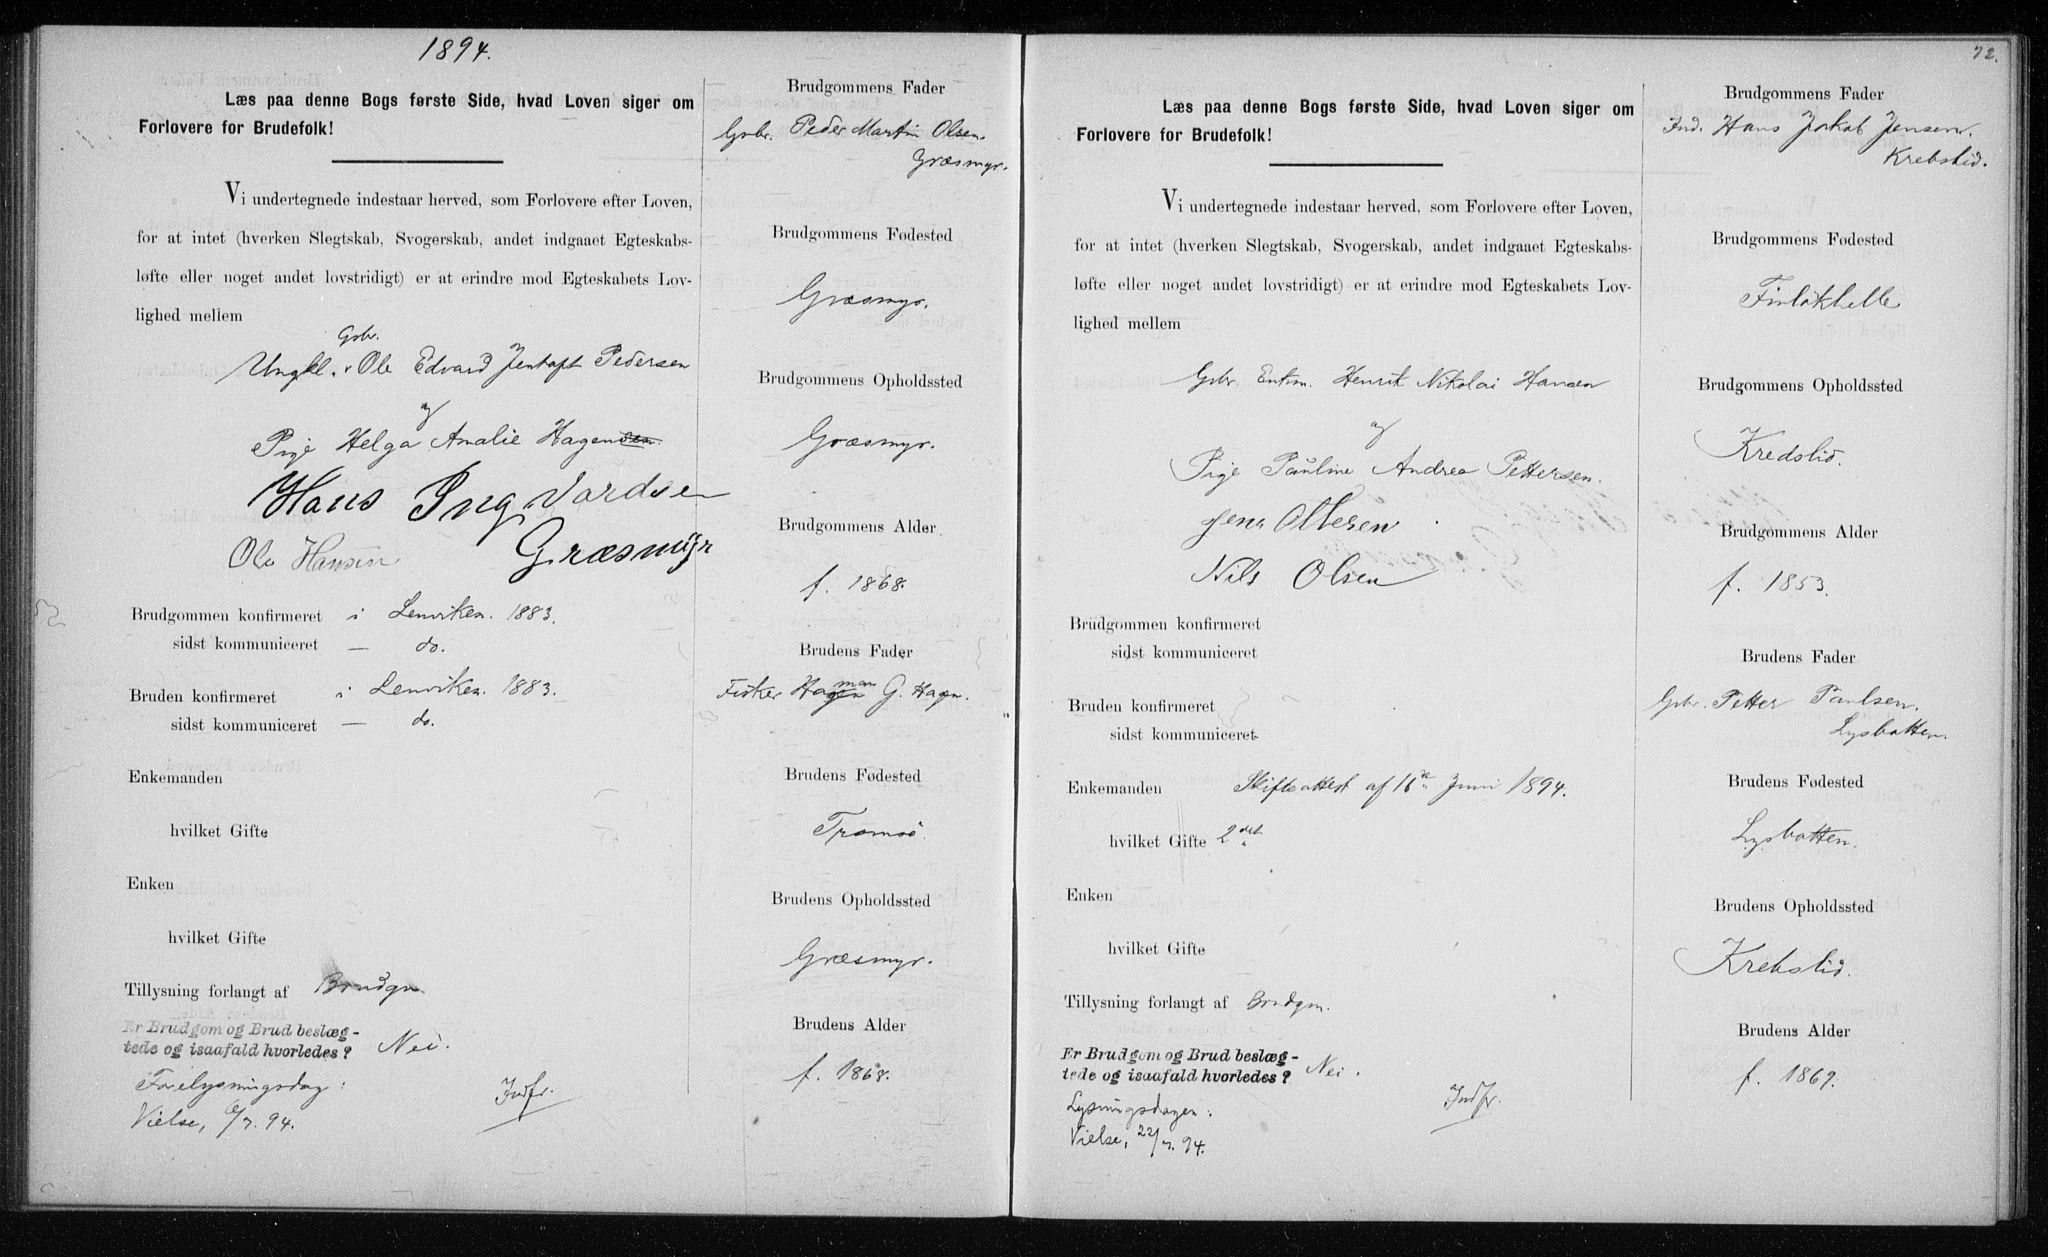 1894.
Læs paa denne Bogs første Side, hvad Loven siger om
Forlovere for Brudefolk!
Vi undertegnede indestaar herved, som Forlovere efter Loven,
for at intet (hverken Slegtskab, Svogerskab, andet indgaaet Egteskabs-
løfte eller noget andet lovstridigt) er at erindre mod Egteskabets Lov-
lighed mellem
Gbr.
Ungkl. Ole Edvard Jentoft Pedersen
og
Pige Helga Amalie Hagensen.
Hans Ingvardsen
Græsmyr
Ole Hansen
Brudgommen konfirmeret i Lenviken. 1883.
sidst kommuniceret — do.
Bruden konfirmeret i Lenviken. 1883.
sidst kommuniceret — do.
Enkemanden
hvilket Gifte
Enken
hvilket Gifte
Tillysning forlangt af Brudgm
Er Brudgom og Brud beslæg-
tede og isaafald hvorledes? Nei.
Forelysningsdag:
Vielse, 6/7. 94.
Indfr.
Brudgommens Fader
Gbr. Peder Martin Olsen.
Græsmyr.
Brudgommens Fødested
Græsmyr.
Brudgommens Opholdssted
Græsmyr.
Brudgommens Alder
f. 1868.
Brudens Fader
Fisker Hagman G. Hagen.
Brudens Fødested
Tromsö.
Brudens Opholdssted
Græsmyr.
Brudens Alder
f. 1868.
72.
Læs paa denne Bogs første Side, hvad Loven siger om
Forlovere for Brudefolk!
Vi undertegnede indestaar herved, som Forlovere efter Loven,
for at intet (hverken Slegtskab, Svogerskab, andet indgaaet Egteskabs-
løfte eller noget andet lovstridigt) er at erindre mod Egteskabets Lov-
lighed mellem
Gbr. Enkm. Henrik Nikolai Hansen
og
Pige Pauline Andrea Pettersen.
Jens Ottesen
Nils Olsen
Brudgommen konfirmeret
sidst kommuniceret
Bruden konfirmeret
sidst kommuniceret
Enkemanden Skifteattest af 16de Juni 1894.
hvilket Gifte 2det
Enken
hvilket Gifte
Tillysning forlangt af Brudgm.
Er Brudgom og Brud beslæg-
tede og isaafald hvorledes? Nei.
Lysningsdagen:
Vielse, 22/7. 94.
Indfr.
Brudgommens Fader
Ind. Hans Jakob Jensen.
Krebslid.
Brudgommens Fødested
Brudgommens Opholdssted
Kredslid.
Brudgommens Alder
f. 1853.
Brudens Fader
Gbr. Petter Paulsen.
Lysbotten.
Brudens Fødested
Lysbotten.
Brudens Opholdssted
Krebslid.
Brudens Alder
f. 1869.